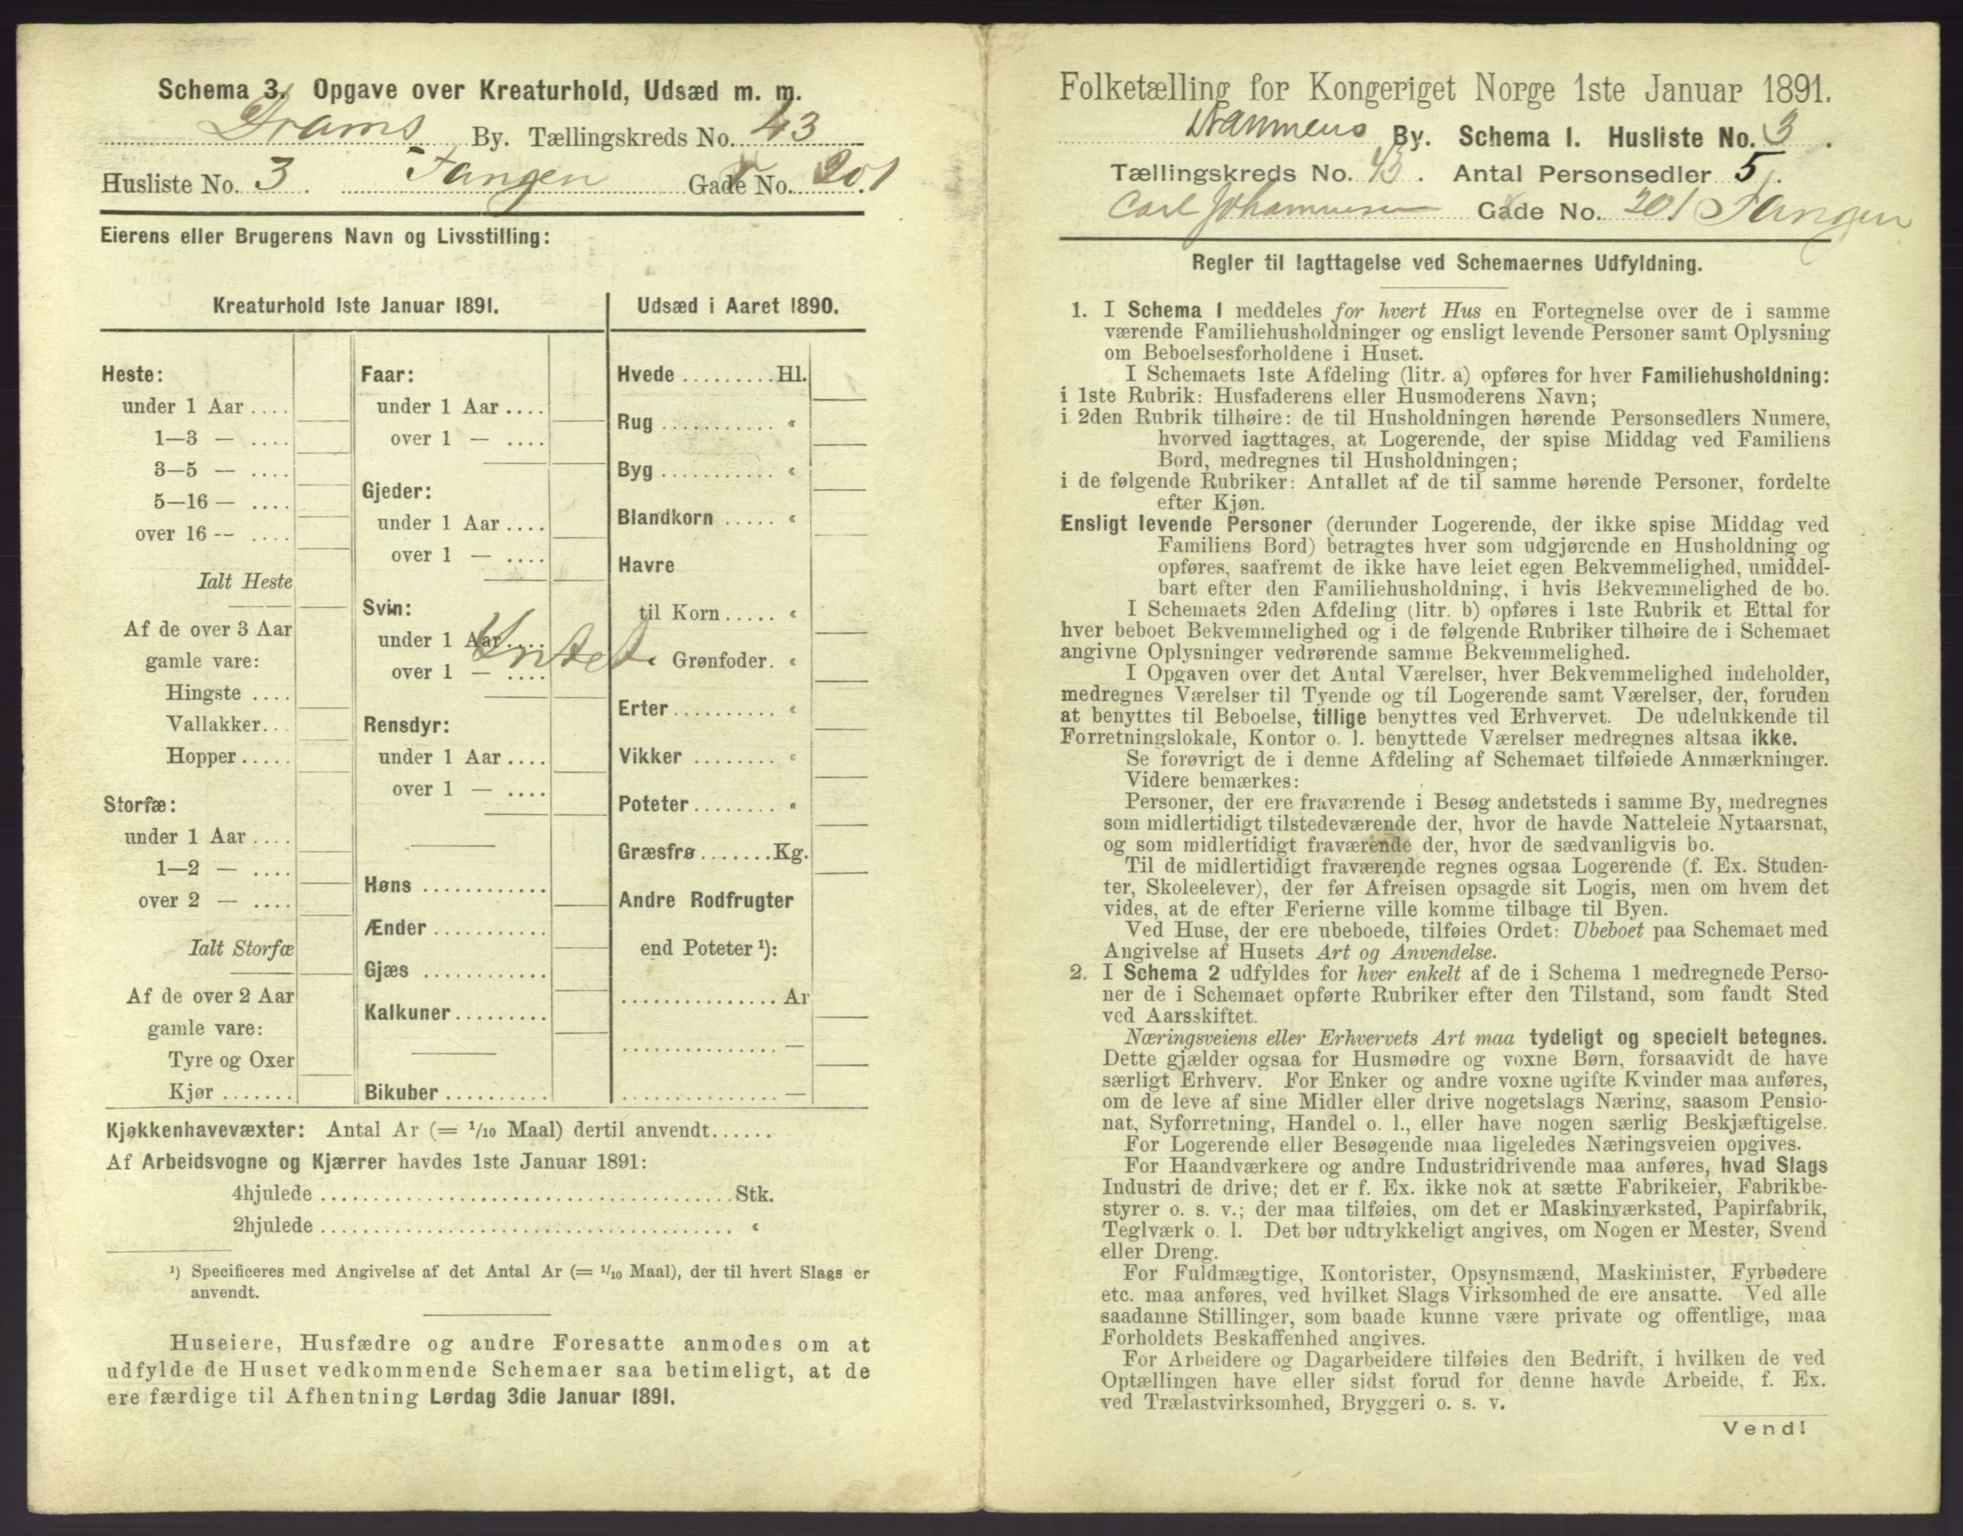 Schema 3. Opgave over Kreaturhold, Udsæd m. m.
Drams By. Tællingskreds No. 43
Husliste No. 3. Tangen Gade No. 201
Eierens eller Brugerens Navn og Livsstilling:
Kreaturhold 1ste Januar 1891.
Heste:
under 1 Aar ....
1—3 — ....
3—5 — ....
5—16 — ....
over 16 -- ....
Ialt Heste
Af de over 3 Aar
gamle vare:
Hingste ....
Vallakker...
Hopper.....
Storfæ:
under 1 Aar ....
1—2 — ....
over 2 — ....
Ialt Storfæ
Af de over 2 Aar
gamle vare:
Tyre og Oxer
Kjør .......
Faar:
under 1 Aar ....
over 1 — ....
Gjeder:
under 1 Aar ....
over 1 — ....
Svin:
under 1 Aar ....
over 1 — ....
Intet
Rensdyr:
under 1 Aar ....
over 1 — ....
Høns ............
Ænder ...........
Gjæs ............
Kalkuner.........
Bikuber ..........
Udsæd i Aaret 1890.
Hvede .........Hl.
Rug ........... "
Byg ........... "
Blandkorn ..... "
Havre
til Korn ..... "
" Grønfoder. "
Erter.......... "
Vikker ........ "
Poteter........ "
Græsfrø .......Kg.
Andre Rodfrugter
end Poteter ¹):
............... Ar
............... —
............... —
Kjøkkenhavevæxter: Antal Ar (= 1/10 Maal) dertil anvendt......
Af Arbeidsvogne og Kjærrer havdes 1ste Januar 1891:
4hjulede .......................................Stk.
2hjulede ....................................... "
¹) Specificeres med Angivelse af det Antal Ar (= 1/10 Maal), der til hvert Slags er
anvendt.
Huseiere, Husfædre og andre Foresatte anmodes om at
udfylde de Huset vedkommende Schemaer saa betimeligt, at de
ere færdige til Afhentning Lørdag 3die Januar 1891.
Folketælling for Kongeriget Norge 1ste Januar 1891.
Drammens By. Schema I. Husliste No. 3.
Tællingskreds No. 43. Antal Personsedler 5.
Carl Johannesen Gade No. 201 Tangen
Regler til Iagttagelse ved Schemaernes Udfyldning.
1. I Schema 1 meddeles for hvert Hus en Fortegnelse over de i samme
værende Familiehusholdninger og ensligt levende Personer samt Oplysning
om Beboelsesforholdene i Huset.
I Schemaets 1ste Afdeling (litr. a) opføres for hver Familiehusholdning:
i 1ste Rubrik: Husfaderens eller Husmoderens Navn;
i 2den Rubrik tilhøire: de til Husholdningen hørende Personsedlers Numere,
hvorved iagttages, at Logerende, der spise Middag ved Familiens
Bord, medregnes til Husholdningen;
i de følgende Rubriker: Antallet af de til samme hørende Personer, fordelte
efter Kjøn.
Ensligt levende Personer (derunder Logerende, der ikke spise Middag ved
Familiens Bord) betragtes hver som udgjørende en Husholdning og
opføres, saafremt de ikke have leiet egen Bekvemmelighed, umiddel-
bart efter den Familiehusholdning, i hvis Bekvemmelighed de bo.
I Schemaets 2den Afdeling (litr. b) opføres i 1ste Rubrik et Ettal for
hver beboet Bekvemmelighed og i de følgende Rubriker tilhøire de i Schemaet
angivne Oplysninger vedrørende samme Bekvemmelighed.
I Opgaven over det Antal Værelser, hver Bekvemmelighed indeholder,
medregnes Værelser til Tyende og til Logerende samt Værelser, der, foruden
at benyttes til Beboelse, tillige benyttes ved Erhvervet. De udelukkende til
Forretningslokale, Kontor o. l. benyttede Værelser medregnes altsaa ikke.
Se forøvrigt de i denne Afdeling af Schemaet tilføiede Anmærkninger.
Videre bemærkes:
Personer, der ere fraværende i Besøg andetsteds i samme By, medregnes
som midlertidigt tilstedeværende der, hvor de havde Natteleie Nytaarsnat,
og som midlertidigt fraværende der, hvor de sædvanligvis bo.
Til de midlertidigt fraværende regnes ogsaa Logerende (f. Ex. Studen-
ter, Skoleelever), der før Afreisen opsagde sit Logis, men om hvem det
vides, at de efter Ferierne ville komme tilbage til Byen.
Ved Huse, der ere ubeboede, tilføies Ordet: Ubeboet paa Schemaet med
Angivelse af Husets Art og Anvendelse.
2. I Schema 2 udfyldes for hver enkelt af de i Schema 1 medregnede Perso-
ner de i Schemaet opførte Rubriker efter den Tilstand, som fandt Sted
ved Aarsskiftet.
Næringsveiens eller Erhvervets Art maa tydeligt og specielt betegnes.
Dette gjælder ogsaa for Husmødre og voxne Børn, forsaavidt de have
særligt Erhverv. For Enker og andre voxne ugifte Kvinder maa anføres,
om de leve af sine Midler eller drive nogetslags Næring, saasom Pensio-
nat, Syforretning, Handel o. l., eller have nogen særlig Beskjæftigelse.
For Logerende eller Besøgende maa ligeledes Næringsveien opgives.
For Haandværkere og andre Industridrivende maa anføres, hvad Slags
Industri de drive; det er f. Ex. ikke nok at sætte Fabrikeier, Fabrikbe-
styrer o. s. v.; der maa tilføies, om det er Maskinværksted, Papirfabrik,
Teglværk o. l. Det bør udtrykkeligt angives, om Nogen er Mester, Svend
eller Dreng.
For Fuldmægtige, Kontorister, Opsynsmænd, Maskinister, Fyrbødere
etc. maa anføres, ved hvilket Slags Virksomhed de ere ansatte. Ved alle
saadanne Stillinger, som baade kunne være private og offentlige, maa
Forholdets Beskaffenhed angives.
For Arbeidere og Dagarbeidere tilføies den Bedrift, i hvilken de ved
Optællingen have eller sidst forud for denne havde Arbeide, f. Ex.
ved Trælastvirksomhed, Bryggeri o. s. v.
Vend!